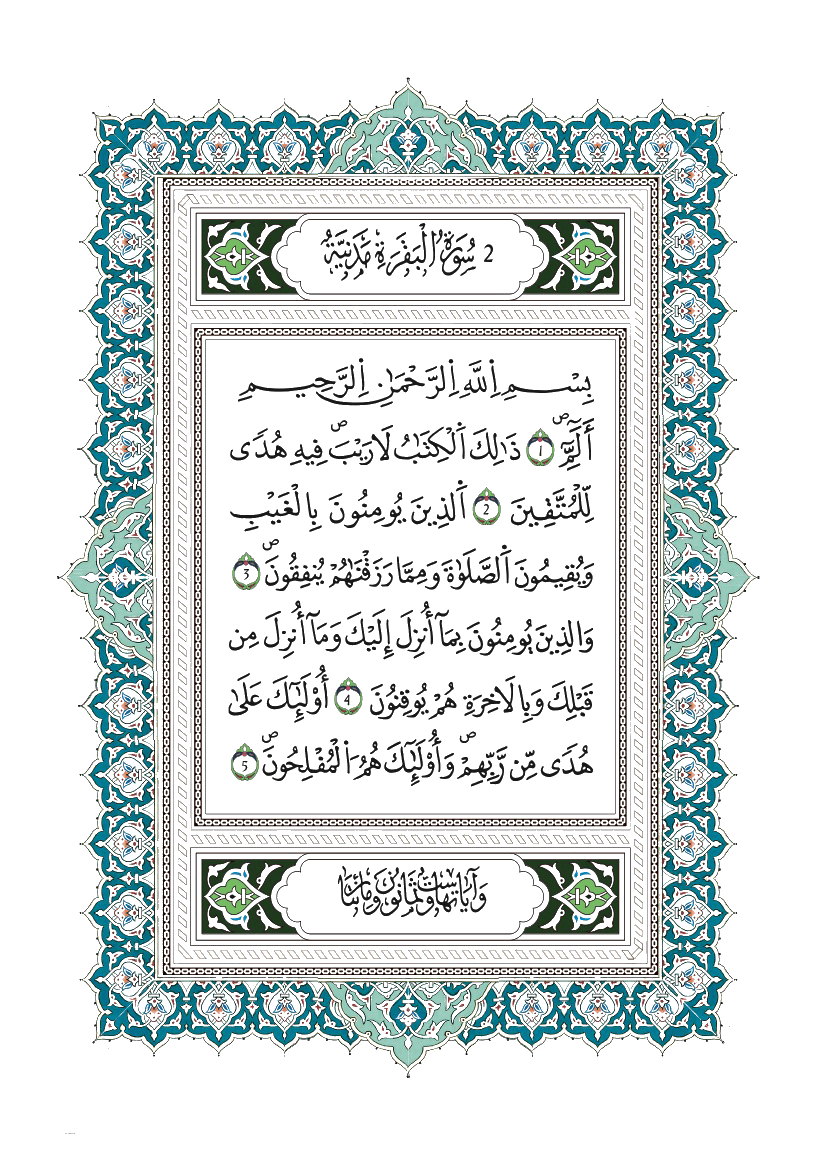 2 سُورَةُ الْبَقَرَةِ مَدَنِيَّةٌ
بِسْمِ اِ۬للَّهِ اِ۬لرَّحْمَٰنِ اِ۬لرَّحِيمِ
أَلَٓمِّٓۖ 1 ذَٰلِكَ اَ۬لْكِتَٰبُ لَا رَيْبَۖ فِيهِ هُدىٗ
لِّلْمُتَّقِينَ 2 اَ۬لذِينَ يُومِنُونَ بِالْغَيْبِ
وَيُقِيمُونَ اَ۬لصَّلَوٰةَ وَمِمَّا رَزَقْنَٰهُمْ يُنفِقُونَۖ 3
وَالذِينَ يُومِنُونَ بِمَآ أُنزِلَ إِلَيْكَ وَمَآ أُنزِلَ مِن
قَبْلِكَ وَبِالَاخِرَةِ هُمْ يُوقِنُونَ 4 أُوْلَٰٓئِكَ عَلَىٰ
هُدىٗ مِّن رَّبِّهِمْۖ وَأُوْلَٰٓئِكَ هُمُ اُ۬لْمُفْلِحُونَۖ 5
وَآيَاتُهَا سِتٌّ وَثَمَانُونَ وَمِائَتَا